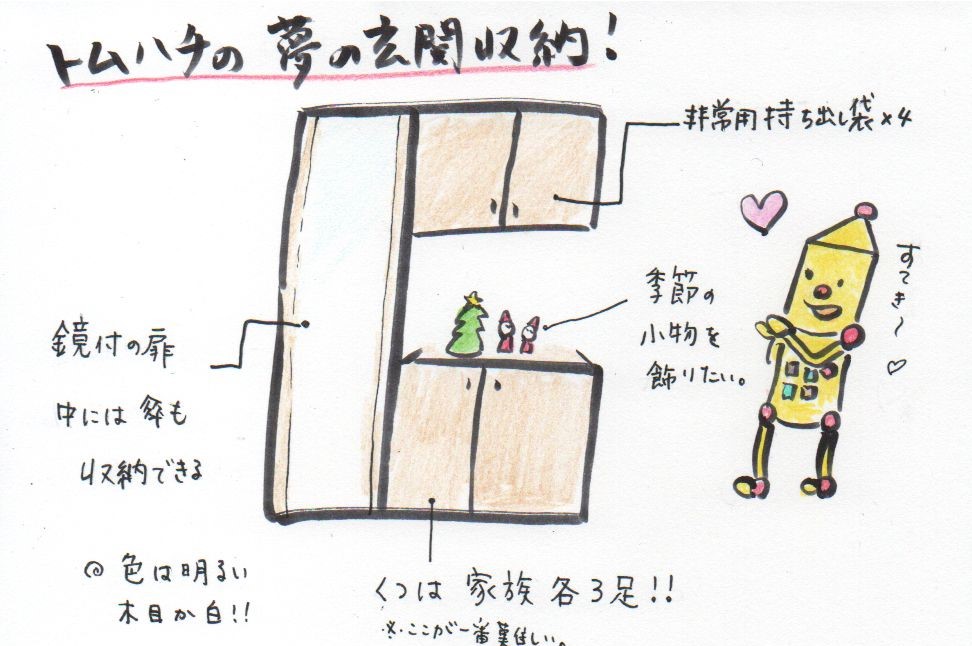 トムハチの 夢の玄関収納！
非常用持ち出し袋×4
すてき〜♡
季節の
小物を
飾りたい。
鏡付の扉
中には 傘も
収納できる
◎ 色は明るい
木目か白!!
くつは 家族 各3足!!
※ここが一番難しい。